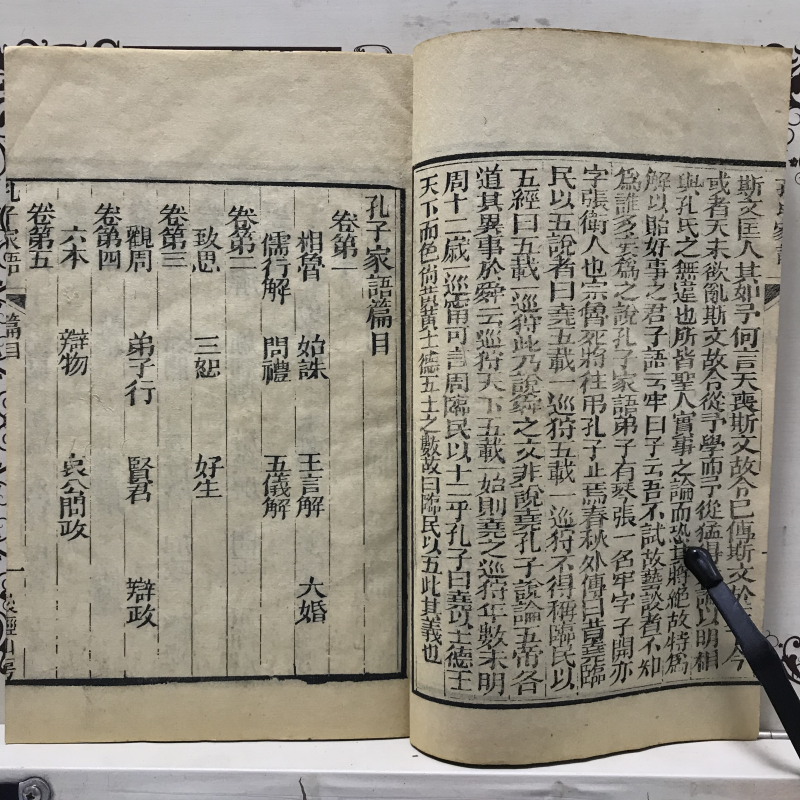 斯文匡人其如予何言天喪斯文故令已傳斯文於 今
或者天未欲亂斯文故令從予學而予從猛得 論以明相
與孔氏之無違也斯皆聖人實事之論而恐其將絶故特爲
解以貽好事之君子語云牢曰子云吾不試故藝談者不知
爲誰多妄爲之說孔子家語弟子有琴張一名牢字子開亦
字張衛人也宗魯死將往吊孔子止焉春秋外傳曰昔堯臨
民以五說者曰堯五載一巡狩五載一巡狩不得稱臨民以
五經曰五載一巡狩此乃說舜之文非說堯孔子說論五帝各
道其異事於舜云巡狩天下五載一始則堯之巡狩年數未明
周十二歲一巡甯可言周臨民以十二乎孔子曰堯以土德王
天下而色尙黃黃土德五土之數故曰臨民以五此其義也
孔子家語篇目
卷第一
相魯 始誅 王言解 大婚
儒行解 問禮 五儀解
卷第二
致思 三恕 好生
卷第三
觀周 弟子行 賢君 辯政
卷第四
六本 辯物 哀公問政
卷第五
孔子家語 篇目 一